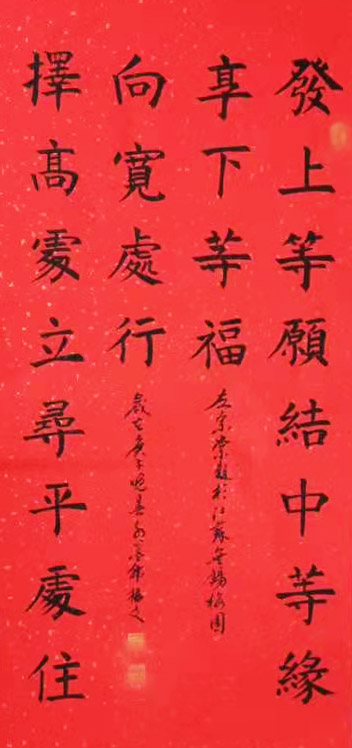 發上等願結中等緣
享下等福
左宗棠題於江蘇無錫梅園
擇髙處立尋平處住
向寬處行
歲在庚子